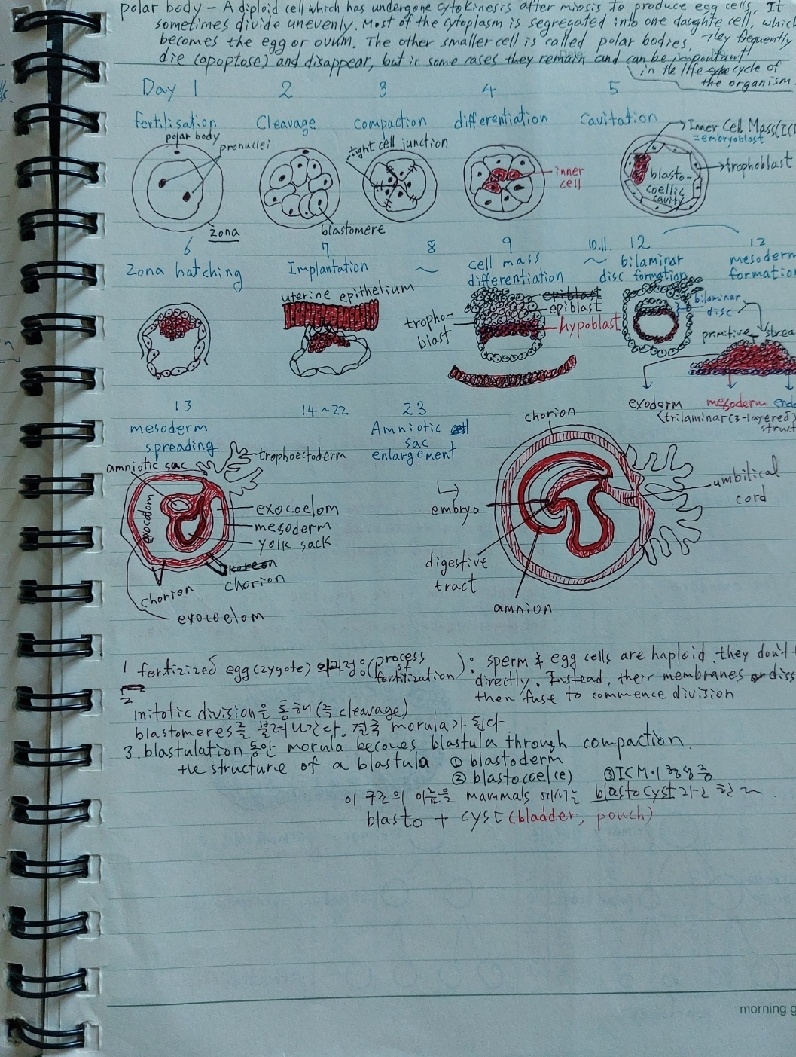 polar body – A diploid cell which has undergone cytokinesis after miosis to produce egg cells. It
sometimes divide unevenly. Most of the cytoplasm is segregated into one daughte cell, which
becomes the egg or ovum. The other smaller cell is called polar bodies. They frequently
die (apoptose) and disappear, but in some cases they remain and can be important
in the life cycle of
the organism.
Day 1 2 3 4 5
fertilisation Cleavage compaction differentiation cavitation
polar body
pronuclei
tight cell junction
Inner Cell Mass(ICM)
=embryoblast
trophoblast
inner
cell
blasto-
coelic
cavity
zona
blastomere
6 7 8 9 10, 11 12 12
Zona hatching Implantation ~ cell mass
differentiation ~ bilaminar
disc formation mesoderm
formation
uterine epithelium
epiblast
epiblast
hypoblast
tropho-
blast
bilaminar
disc
primitive strea
exoderm mesoderm endo
(trilaminar(3-layered)
struct
13 14~22 23
mesoderm
spreading
Amniotic
sac
enlargement
amniotic sac
trophoectoderm
exocoelom
exocoelom
mesoderm
yolk sack
chorion
chorion
exocoelom
chorion
umbilical
cord
embryo
digestive
tract
amnion
1 fertizized egg(zygote) 의 과정은 (process of fertilization): sperm & egg cells are haploid. they don't
directly. Instead, their membranes diss
then fuse to commence division
2
mitotic division을 통해 (즉 cleavage)
blastomeres를 늘려나간다. 결국 morula가 된다
3. blastulation 동안 morula becoes blastula through compaction.
the structure of a blastula ① blastoderm
② blastocoel(e) ③ ICM이 형성중
이 구간의 이름을 mammals 에서는 blastocyst라고 함 ~
blasto + cyst (bladder, pouch)
morning g